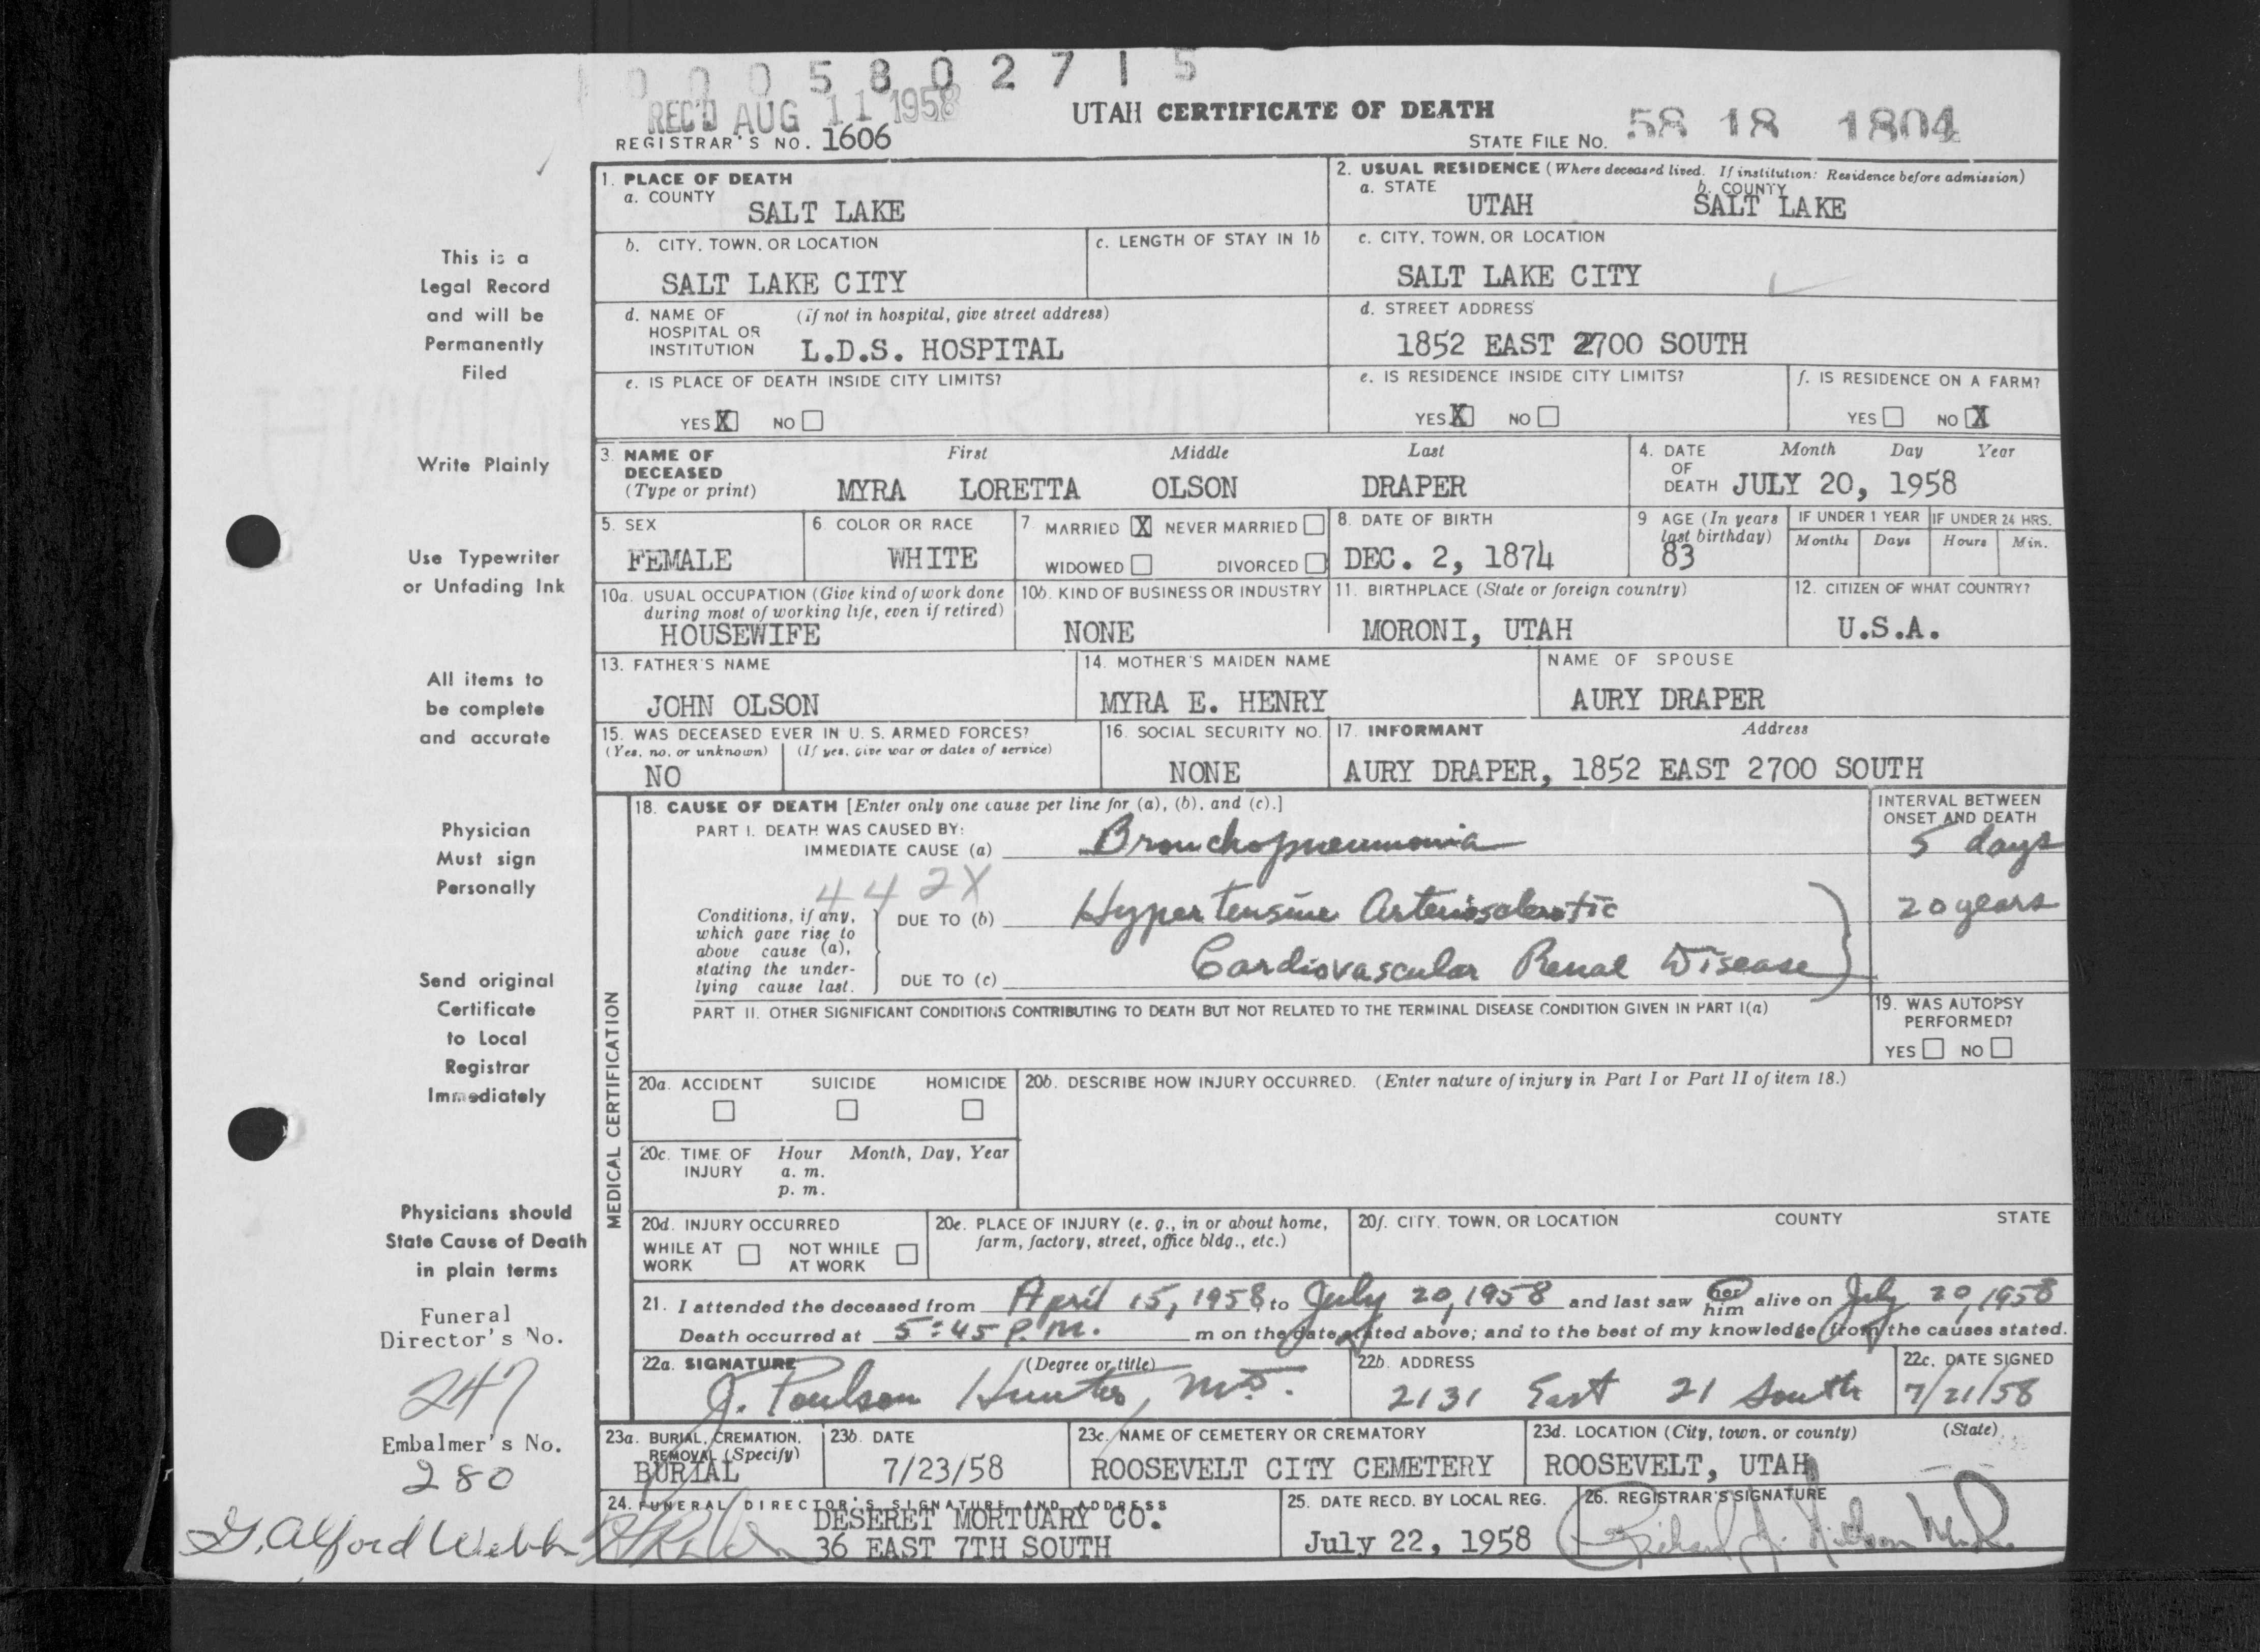 0 0 0 5 8 0 2 7 1 5
REC'D AUG 11 1958
UTAH CERTIFICATE OF DEATH
REGISTRAR'S NO. 1606
STATE FILE NO. 58 18 1804
This is a
Legal Record
and will be
Permanently
Filed
Write Plainly
Use Typewriter
or Unfading Ink
All items to
be complete
and accurate
Physician
Must sign
Personally
Send original
Certificate
to Local
Registrar
Immediately
Physicians should
State Cause of Death
in plain terms
Funeral
Director's No.
247
Embalmer's No.
280
G. Alford Webb
1. PLACE OF DEATH
a. COUNTY
SALT LAKE
2. USUAL RESIDENCE (Where deceased lived. If institution: Residence before admission)
a. STATE b. COUNTY
UTAH SALT LAKE
b. CITY, TOWN, OR LOCATION
SALT LAKE CITY
c. LENGTH OF STAY IN 1b
c. CITY, TOWN, OR LOCATION
SALT LAKE CITY
d. NAME OF (if not in hospital, give street address)
HOSPITAL OR
INSTITUTION L.D.S. HOSPITAL
d. STREET ADDRESS
1852 EAST 2700 SOUTH
e. IS PLACE OF DEATH INSIDE CITY LIMITS?
YES X NO
e. IS RESIDENCE INSIDE CITY LIMITS?
YES X NO
f. IS RESIDENCE ON A FARM?
YES NO X
3. NAME OF DECEASED (Type or print)
First Middle Last
MYRA LORETTA OLSON DRAPER
4. DATE OF DEATH Month Day Year
JULY 20, 1958
5. SEX
FEMALE
6. COLOR OR RACE
WHITE
7. MARRIED X NEVER MARRIED
WIDOWED DIVORCED
8. DATE OF BIRTH
DEC. 2, 1874
9 AGE (In years
last birthday)
83
IF UNDER 1 YEAR
Months Days
IF UNDER 24 HRS.
Hours Min.
10a. USUAL OCCUPATION (Give kind of work done
during most of working life, even if retired)
HOUSEWIFE
10b. KIND OF BUSINESS OR INDUSTRY
NONE
11. BIRTHPLACE (State or foreign country)
MORONI, UTAH
12. CITIZEN OF WHAT COUNTRY?
U.S.A.
13. FATHER'S NAME
JOHN OLSON
14. MOTHER'S MAIDEN NAME
MYRA E. HENRY
NAME OF SPOUSE
AURY DRAPER
15. WAS DECEASED EVER IN U. S. ARMED FORCES?
(Yes, no, or unknown) (If yes, give war or dates of service)
NO
16. SOCIAL SECURITY NO.
NONE
17. INFORMANT Address
AURY DRAPER, 1852 EAST 2700 SOUTH
MEDICAL CERTIFICATION
18. CAUSE OF DEATH [Enter only one cause per line for (a), (b), and (c).]
INTERVAL BETWEEN
ONSET AND DEATH
PART I. DEATH WAS CAUSED BY:
IMMEDIATE CAUSE (a) Bronchopneumonia 5 days
442X
Conditions, if any,
which gave rise to
above cause (a),
stating the under-
lying cause last.
DUE TO (b) Hypertensive Arteriosclerotic 20 years
DUE TO (c) Cardiovascular Renal Disease
PART II. OTHER SIGNIFICANT CONDITIONS CONTRIBUTING TO DEATH BUT NOT RELATED TO THE TERMINAL DISEASE CONDITION GIVEN IN PART I(a)
19. WAS AUTOPSY
PERFORMED?
YES NO
20a. ACCIDENT SUICIDE HOMICIDE
20b. DESCRIBE HOW INJURY OCCURRED. (Enter nature of injury in Part I or Part II of item 18.)
20c. TIME OF INJURY Hour Month, Day, Year
a. m.
p. m.
20d. INJURY OCCURRED
WHILE AT WORK NOT WHILE AT WORK
20e. PLACE OF INJURY (e. g., in or about home,
farm, factory, street, office bldg., etc.)
20f. CITY, TOWN, OR LOCATION COUNTY STATE
21. I attended the deceased from April 15, 1958, to July 20, 1958 and last saw her him alive on July 20, 1958
Death occurred at 5:45 P.M. m on the date stated above; and to the best of my knowledge, from the causes stated.
22a. SIGNATURE (Degree or title)
J. Poulson Hunter, M.D.
22b. ADDRESS
2131 East 21 South
22c. DATE SIGNED
7/21/58
23a. BURIAL, CREMATION,
REMOVAL (Specify)
BURIAL
23b. DATE
7/23/58
23c. NAME OF CEMETERY OR CREMATORY
ROOSEVELT CITY CEMETERY
23d. LOCATION (City, town, or county) (State)
ROOSEVELT, UTAH
24. FUNERAL DIRECTOR'S SIGNATURE AND ADDRESS
DESERET MORTUARY CO.
36 EAST 7TH SOUTH
25. DATE RECD. BY LOCAL REG.
July 22, 1958
26. REGISTRAR'S SIGNATURE